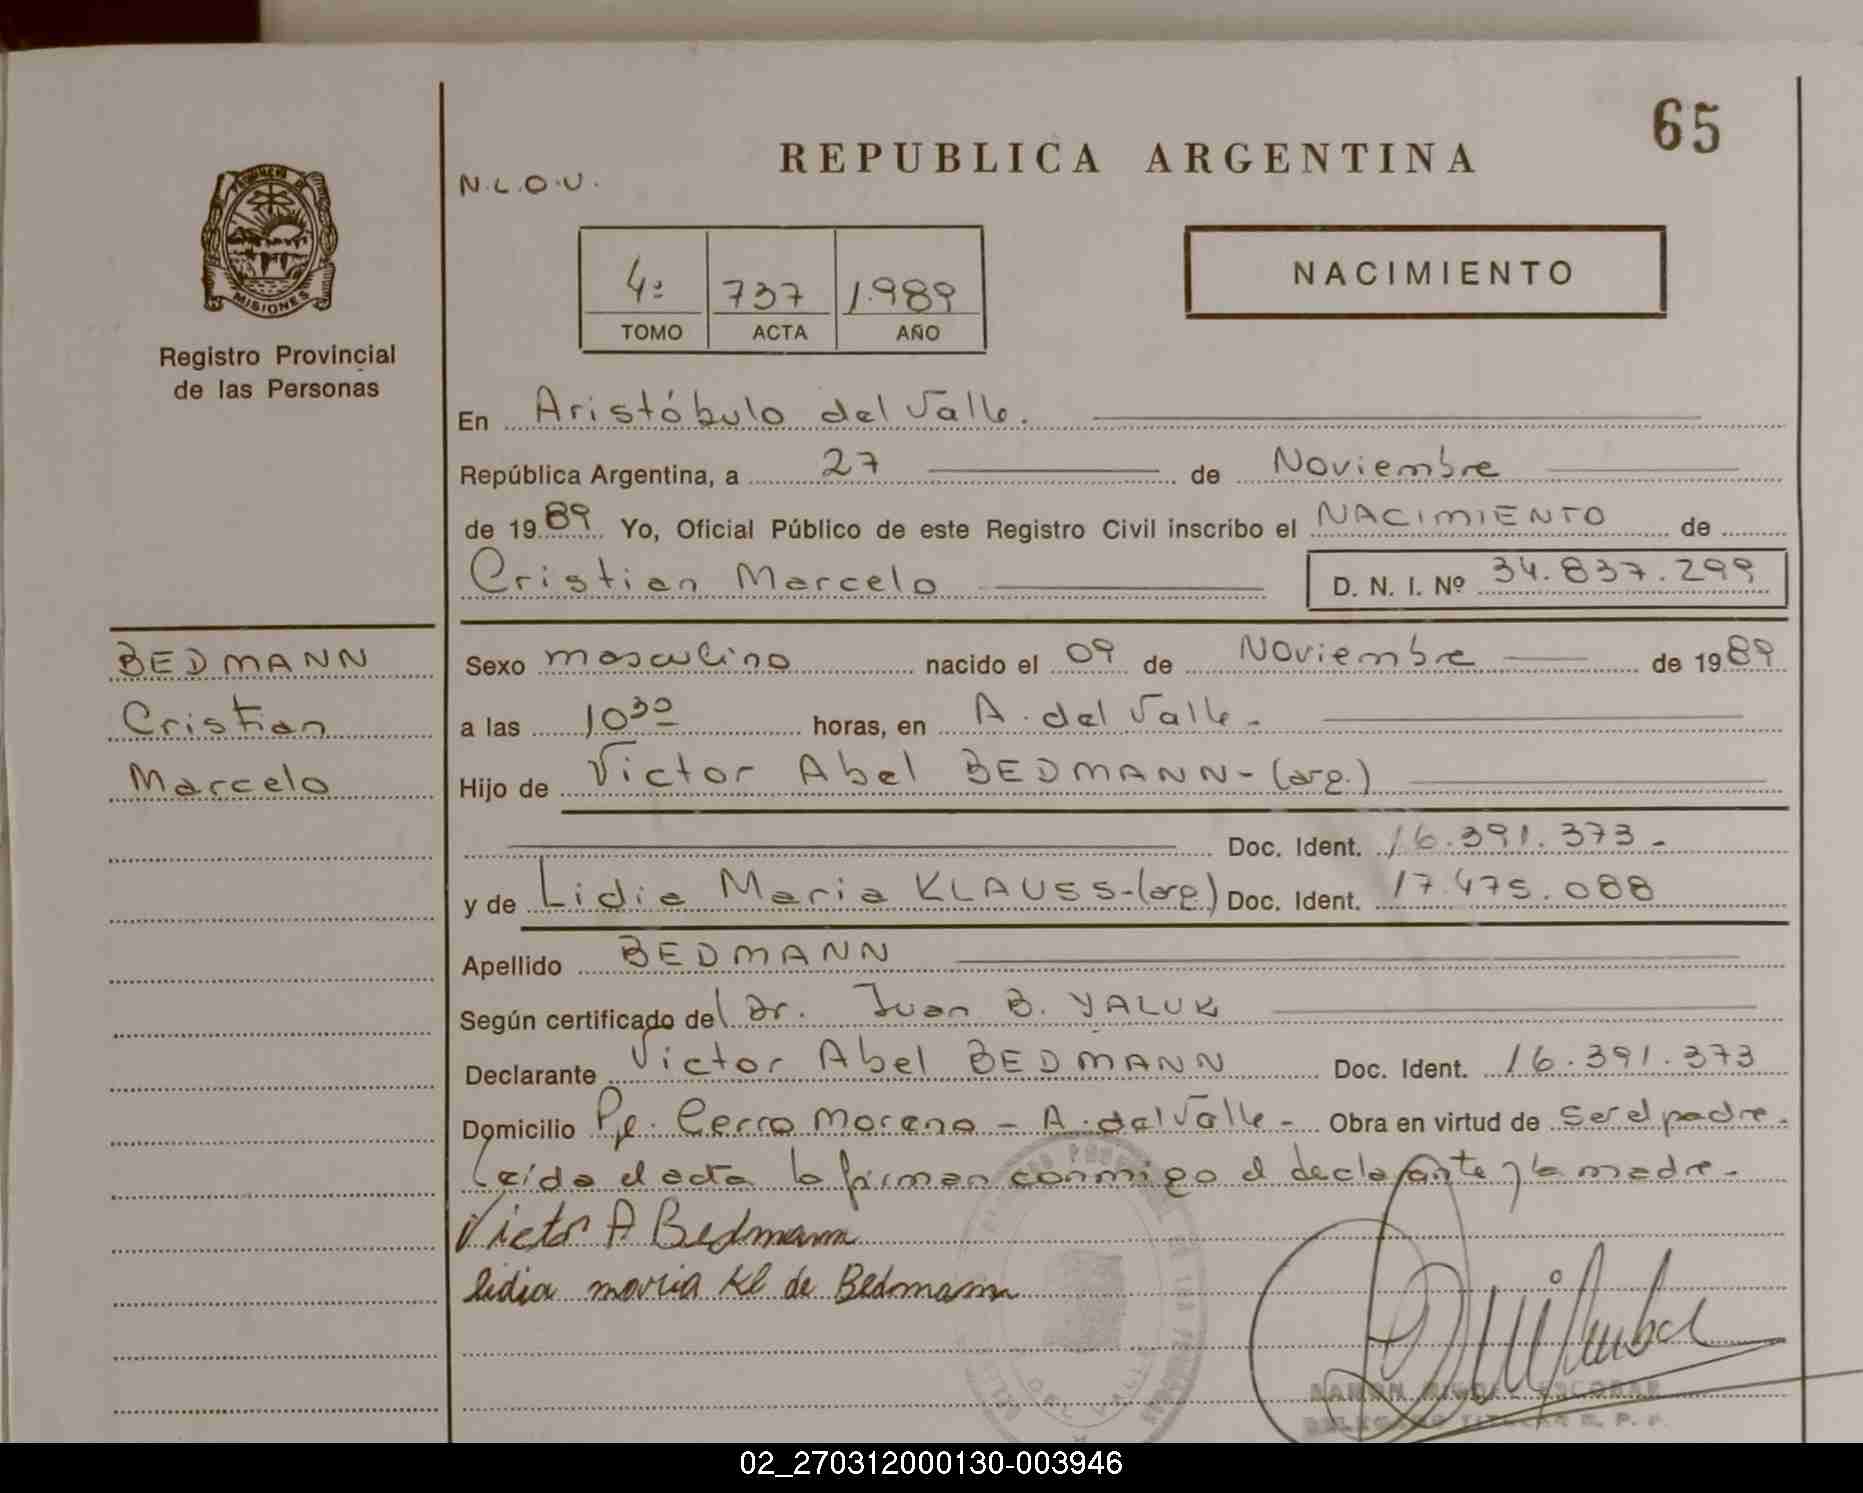 65
REPUBLICA ARGENTINA
N.L.O.U.
NACIMIENTO
4º 737 1.989
TOMO ACTA AÑO
MISIONES
Registro Provincial
de las Personas
En Aristóbulo del Valle.
República Argentina, a 27 de Noviembre
de 1989 Yo, Oficial Público de este Registro Civil inscribo el NACIMIENTO de
Cristian Marcelo D. N. I. Nº 34.837.299
BEDMANN
Cristian
Marcelo
Sexo masculino nacido el 09 de Noviembre de 1989
a las 10 30 horas, en A. del Valle -
Hijo de Victor Abel BEDMANN - (arg.)
Doc. Ident. 16.391.373 -
y de Lidia Maria KLAUSS - (arg) Doc. Ident. 17.475.088
Apellido BEDMANN
Según certificado del Dr. Juan B. YALUK
Declarante Victor Abel BEDMANN Doc. Ident. 16.391.373
Domicilio Pje. Cerro Moreno - A. del Valle - Obra en virtud de ser el padre.
Leída el acta la firman conmigo el declarante y la madre -
Victor A Bedmann
lidia maria Kl de Bedmann
RAMON MIGUEL ESCOBAR
DELEGADO TITULAR R. P. P.
02_270312000130-003946